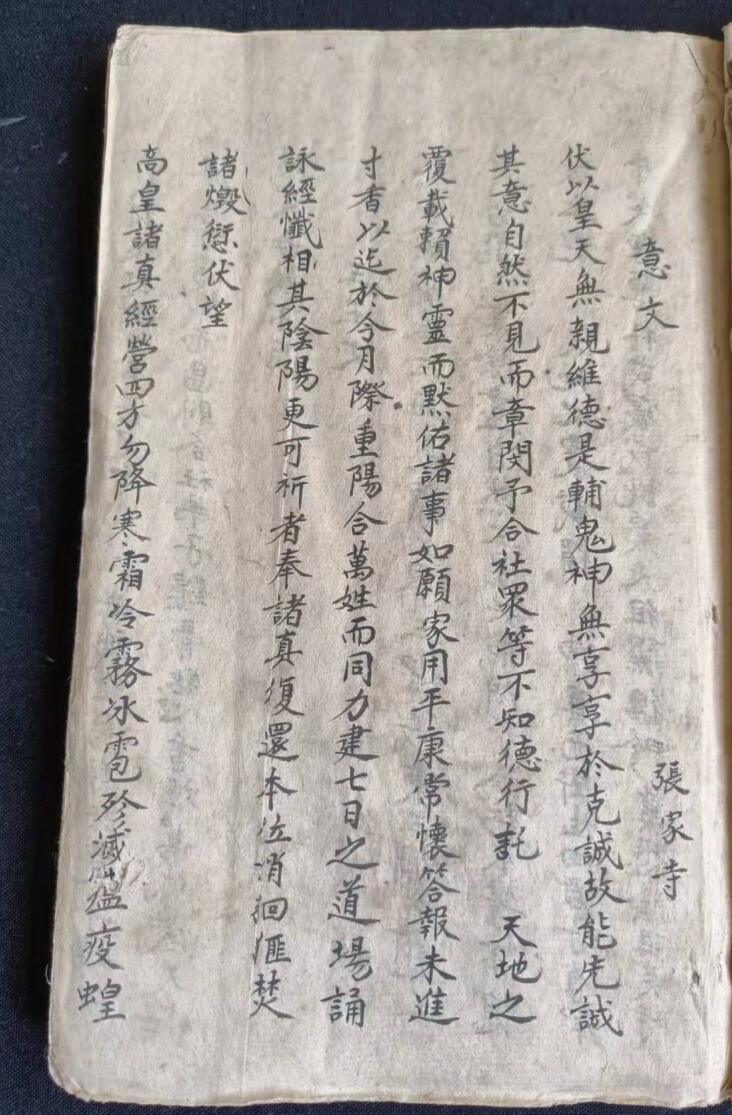 意文
張家寺
伏以皇天無親維德是輔鬼神無享享於克誠故能先誠
其意自然不見而章閔予合社眾等不知德行託 天地之
覆載賴神靈而默佑諸事如願家用平康常懷答報未進
寸香以迄於今月際重陽合萬姓而同力建七日之道場誦
詠經懺相其陰陽更可祈者奉諸真復還本位消徊匪焚
諸燬愆伏望
高皇諸真經營四方勿降寒霜冷霧冰雹殄滅瘟疫蝗